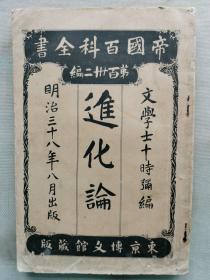 帝國百科全書
第百卅二編
文學士十時彌編
進化論
明治三十八年八月出版
東京博文館蔵版